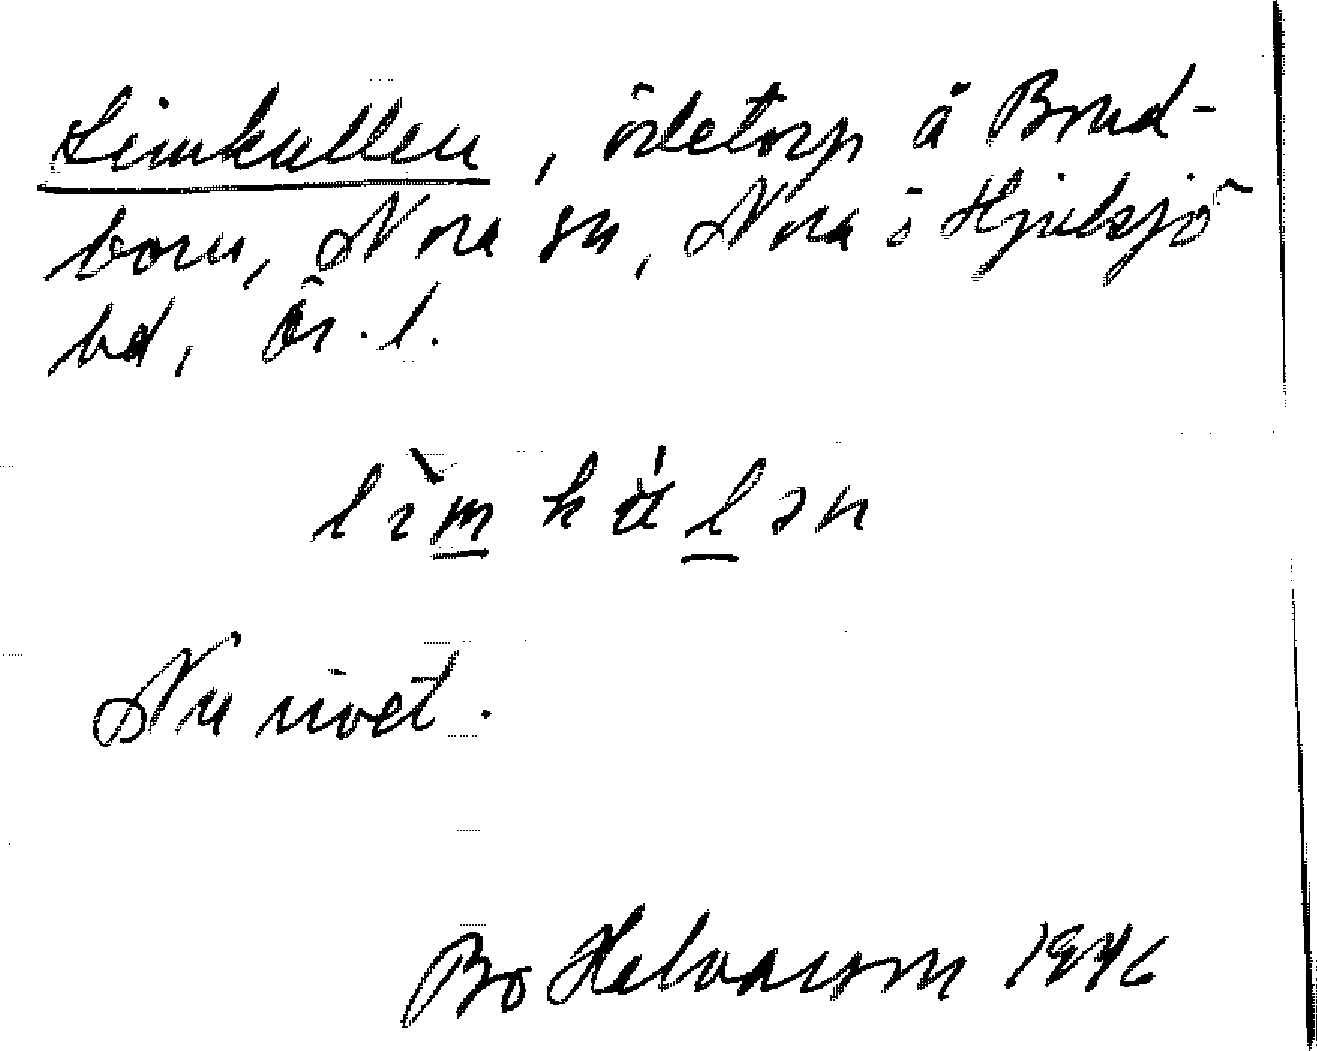 Limkullen, ödetorp å Brud-
born, Nora sn, Nora o Hjulsjö
bd, Ör. l.
lìmkúlən
Nu rivet.
Bo Helvarson 1946